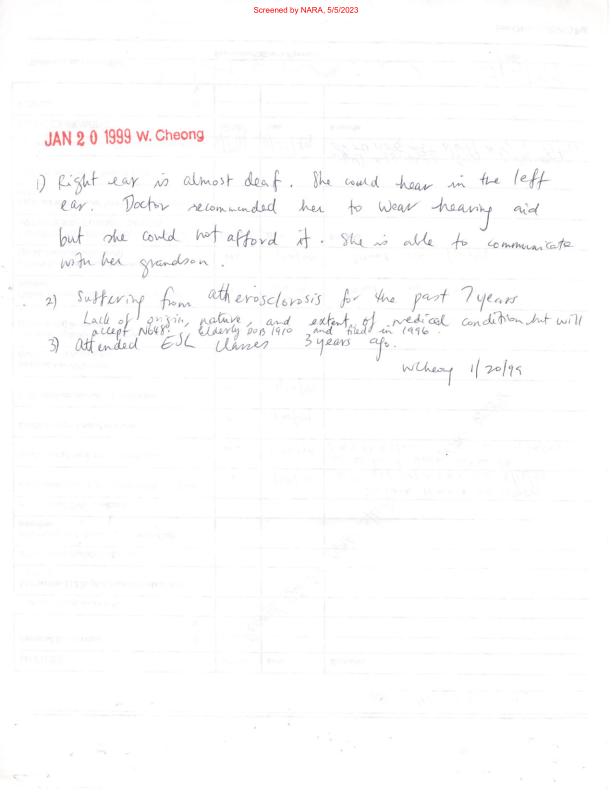 Screened by NARA, 5/5/2023
JAN 20 1999 W. Cheong
1) Right ear is almost deaf. She could hear in the left
ear. Doctor recommended her to wear hearing aid
but she could not afford it. She is able to communicate
with her grandson.
2) Suffering from atherosclorosis for the past 7 years
Lack of origin, nature, and extent of medical condition but will
accept N648. Elderly DOB 1910 and filed in 1996.
3) Attended ESL classes 3 years ago.
WCheong 1/20/99